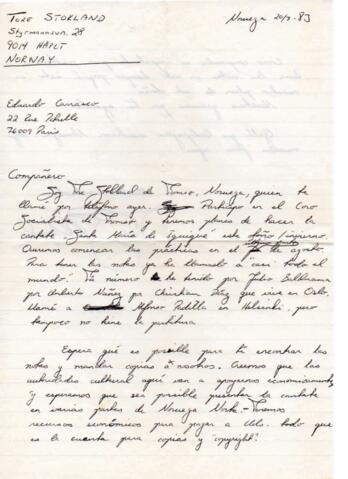 Tore STORLAND
Styrmannsvn. 28
9014 HAPLT
NORWAY
Noruega 20/7-83
Eduardo Carrasco
22 Rue
Paris
Compañero
Soy Tore Storland de Tromsö, Noruega, quien te
llamó por teléfono ayer. Participo en el Coro
Socialista de Tromsö y tenemos planes de hacer la
cantata "Santa María de Iquique" este otoño/invierno.
Queremos comenzar las prácticas en el de agosto.
Para tener las notas ya he llamado a "casi todo el
mundo". Tú número he tenido por Julio
por Núñez, por que vive en Oslo,
llamé a Alfonso Padilla en Helsinki, pero
tampoco no tiene la partitura.
Espero qué es posible para tí encontrar las
notas y mandar copias a nosotros. Creemos que las
autoridades cultural aquí van a apoyarnos económicamente
y esperamos que será posible presentar la cantata
en varias partes de Noruega Norte. - Tenemos
recursos económicos para pagar a Uds. todo que
es la cuenta para copias y "copyright".